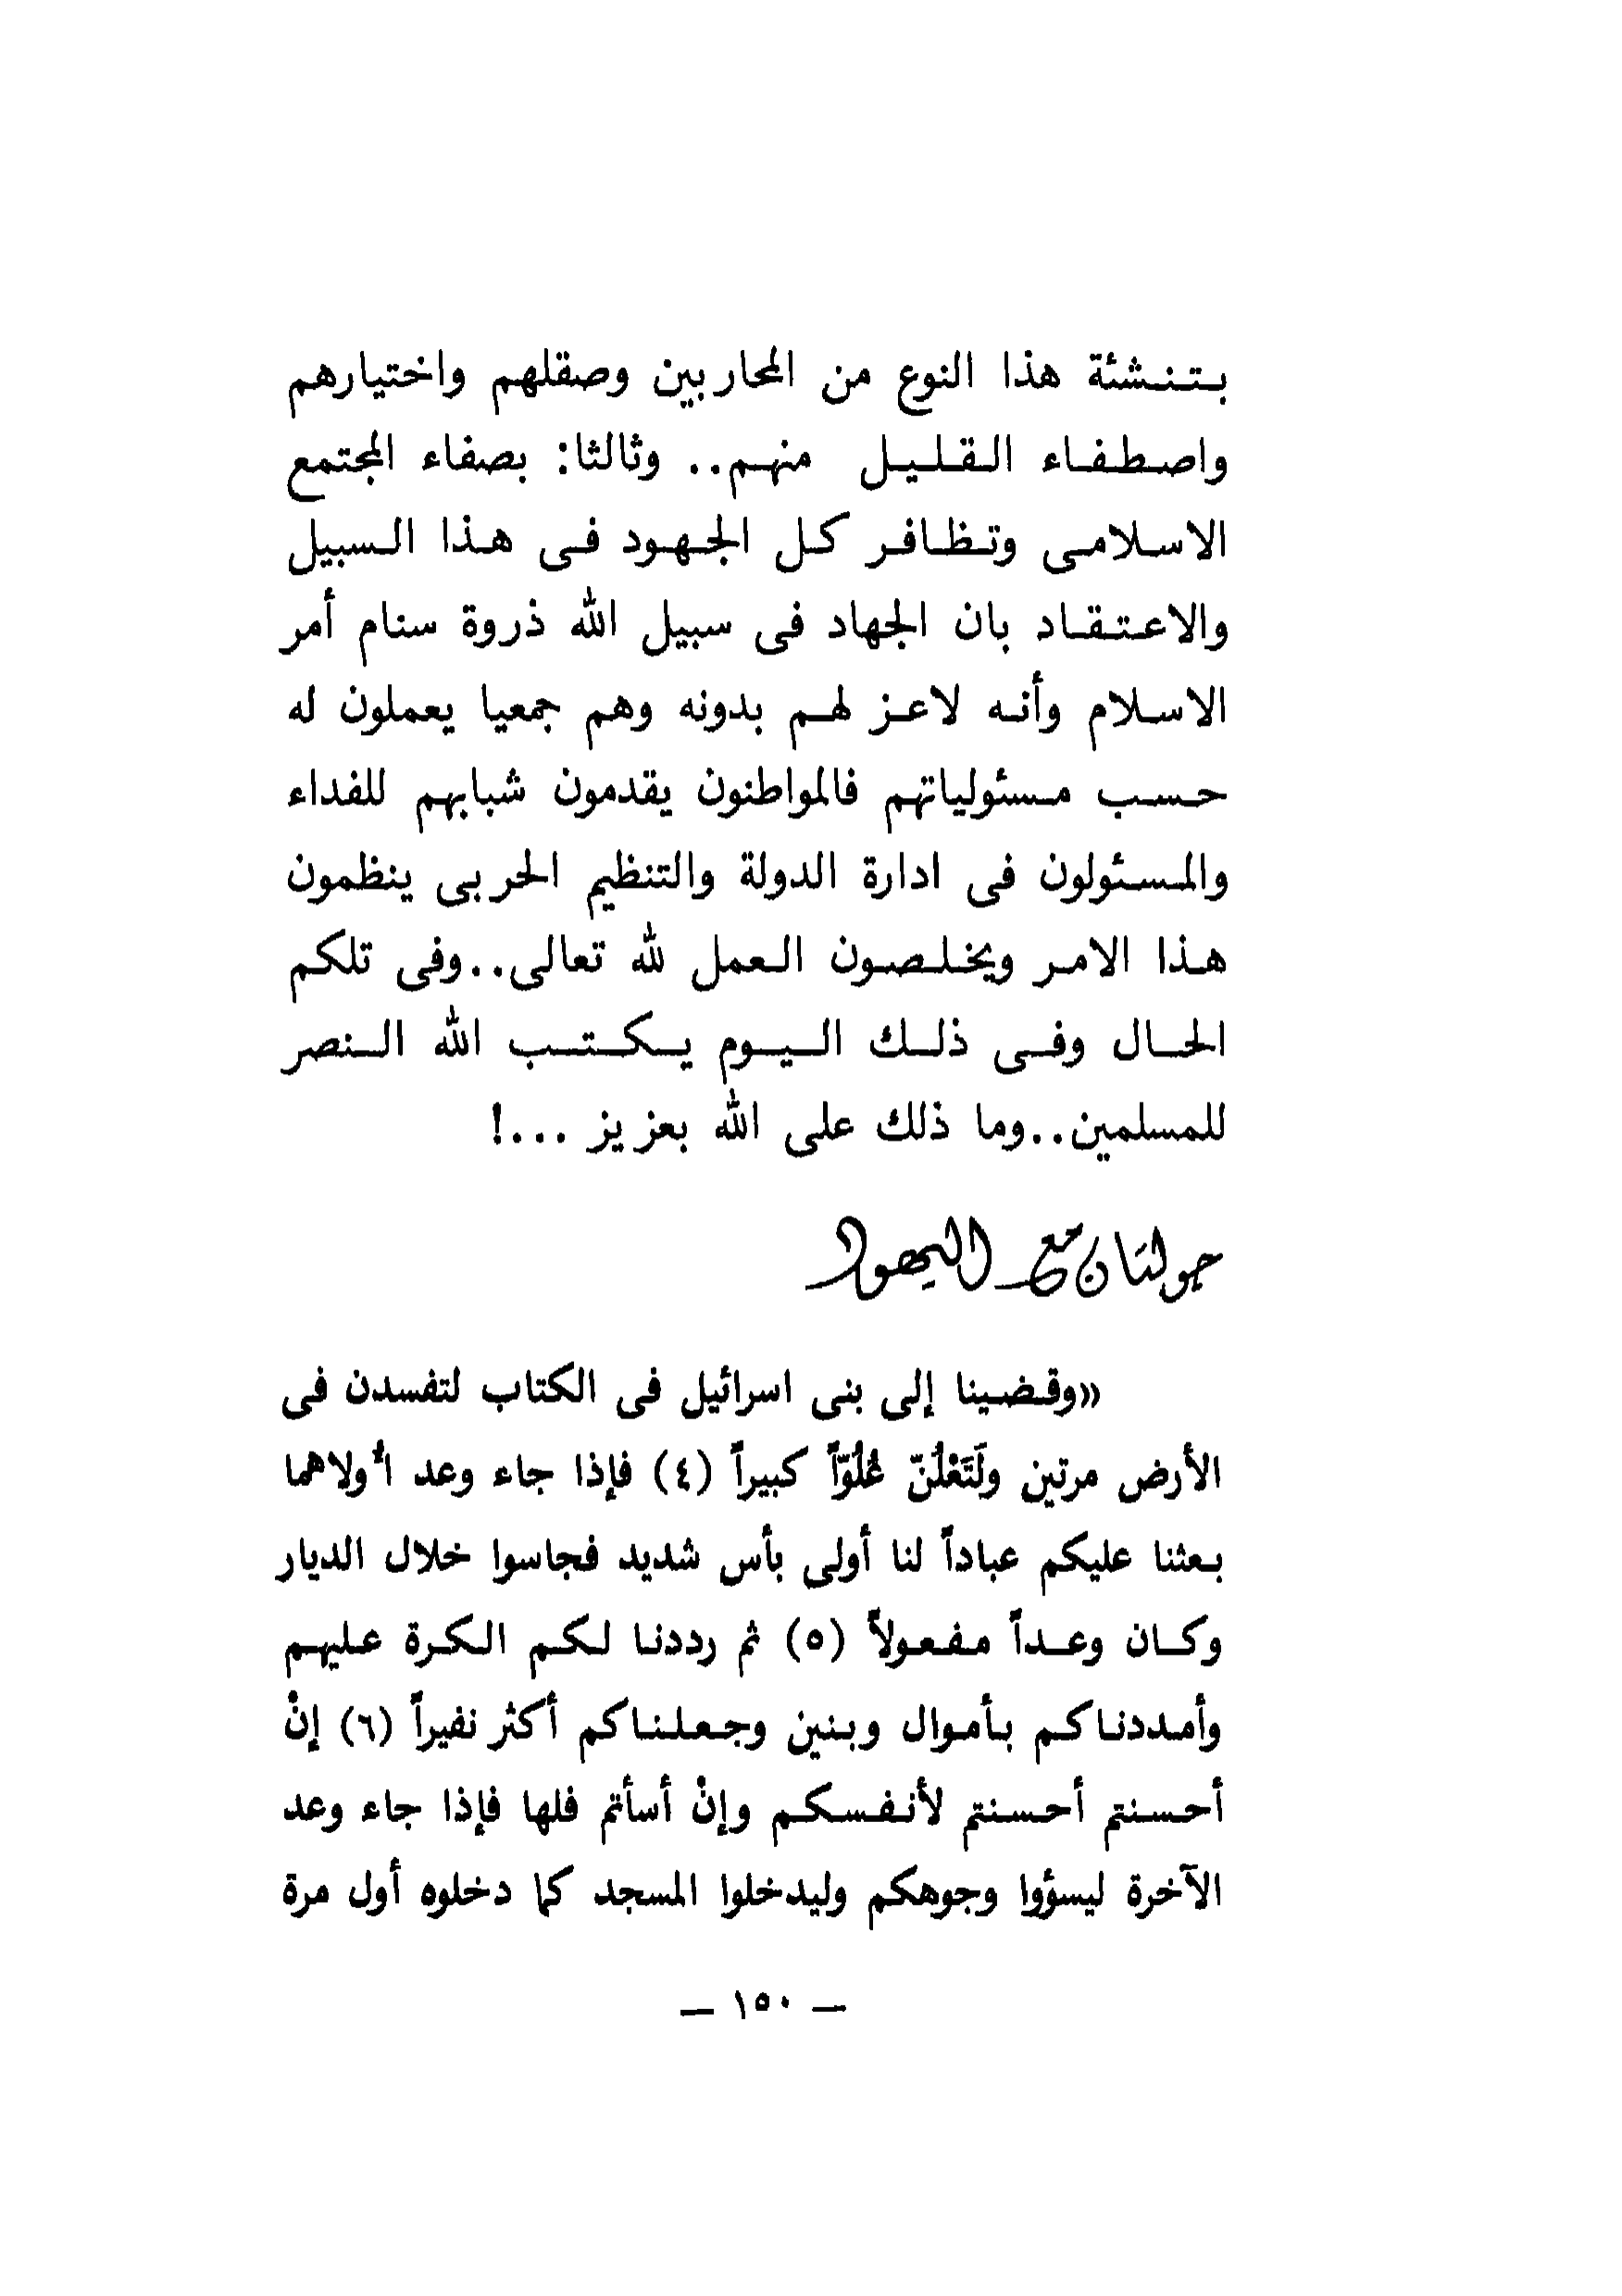 بتنشئة هذا النوع من المحاربين وصقلهم واختيارهم
واصطفاء القليل منهم.. وثالثا: بصفاء المجتمع
الاسلامى وتظافر كل الجهود فى هذا السبيل
والاعتقاد بان الجهاد فى سبيل الله ذروة سنام أمر
الاسلام وأنه لاعز لهم بدونه وهم جمعيا يعملون له
حسب مسئولياتهم فالمواطنون يقدمون شبابهم للفداء
والمسئولون فى ادارة الدولة والتنظيم الحربى ينظمون
هذا الامر ويخلصون العمل لله تعالى..وفى تلكم
الحال وفى ذلك اليوم يكتب الله النصر
للمسلمين..وما ذلك على الله بعزيز ...!
جولتان مع اليهود
«وقضينا إلى بنى اسرائيل فى الكتاب لتفسدن فى
الأرض مرتين ولَتَعْلُنّ عُلُوّاً كبيراً (٤) فإذا جاء وعد أُولاهما
بعثنا عليكم عباداً لنا أولى بأس شديد فجاسوا خلال الديار
وكان وعداً مفعولاً (٥) ثم رددنا لكم الكرة عليهم
وأمددناكم بأموال وبنين وجعلناكم أكثر نفيراً (٦) إنْ
أحسنتم أحسنتم لأنفسكم وإنْ أسأتم فلها فإذا جاء وعد
الآخرة ليسؤوا وجوهكم وليدخلوا المسجد كما دخلوه أول مرة
— ١٥٠ —